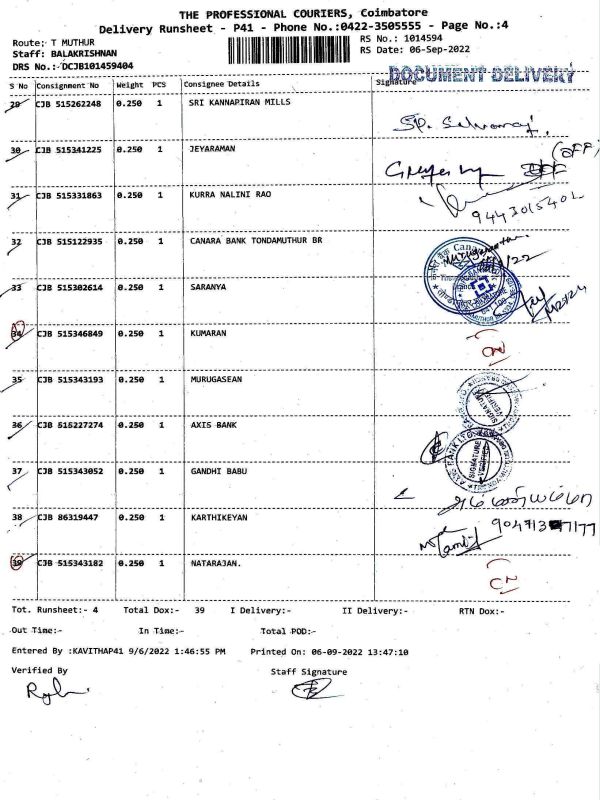 THE PROFESSIONAL COURIERS, Coimbatore
Delivery Runsheet - P41 - Phone No.:0422-3505555 - Page No.:4
Route: T MUTHUR
RS No.: 1014594
Staff: BALAKRISHNAN
RS Date: 06-Sep-2022
DRS No.: DCJB101459404
DOCUMENT DELIVERY
S No Consignment No Weight PCS Consignee Details Signature
29 CJB 515262248 0.250 1 SRI KANNAPIRAN MILLS
SP. Selvaraj.
30 CJB 515341225 0.250 1 JEYARAMAN
(OFF)
31 CJB 515331863 0.250 1 KURRA NALINI RAO
9443015402
32 CJB 515122935 0.250 1 CANARA BANK TONDAMUTHUR BR
33 CJB 515302614 0.250 1 SARANYA
34 CJB 515346849 0.250 1 KUMARAN
35 CJB 515343193 0.250 1 MURUGASEAN
SIGNATURE VERIFIED
36 CJB 515227274 0.250 1 AXIS BANK
SIGNATURE VERIFIED
37 CJB 515343052 0.250 1 GANDHI BABU
38 CJB 86319447 0.250 1 KARTHIKEYAN
39 CJB 515343182 0.250 1 NATARAJAN.
Tot. Runsheet:- 4 Total Dox:- 39 I Delivery:- II Delivery:- RTN Dox:-
Out Time:- In Time:- Total POD:-
Entered By :KAVITHAP41 9/6/2022 1:46:55 PM Printed On: 06-09-2022 13:47:10
Verified By Staff Signature